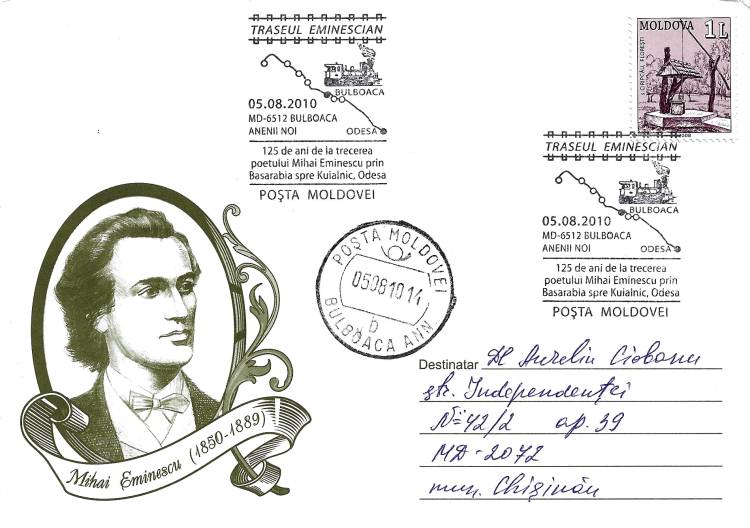 TRASEUL EMINESCIAN
BULBOACA
05.08.2010
MD-6512 BULBOACA
ANENII NOI
ODESA
125 de ani de la trecerea
poetului Mihai Eminescu prin
Basarabia spre Kuialnic, Odesa
POŞTA MOLDOVEI
MOLDOVA 1L
TRASEUL EMINESCIAN
BULBOACA
05.08.2010
MD-6512 BULBOACA
ANENII NOI
ODESA
125 de ani de la trecerea
poetului Mihai Eminescu prin
Basarabia spre Kuialnic, Odesa
POŞTA MOLDOVEI
POŞTA MOLDOVEI
05081014
b
BULBOACA ANN
Mihai Eminescu (1850-1889)
Destinatar Dl Aureliu Ciobanu
str. Independenţei
№ 42/2 ap. 39
MD-2072
mun. Chişinău